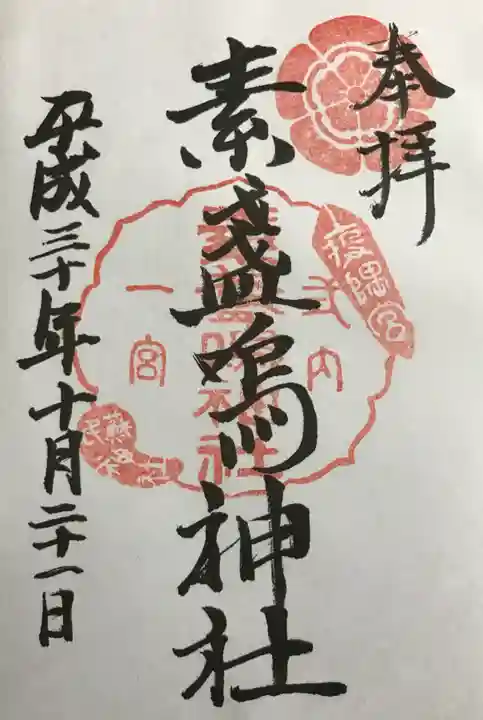 奉拝
疫隅宮
式内
素盞嗚神社
素盞嗚神社
一宮
蘇民
神社
平成三十年十月二十一日